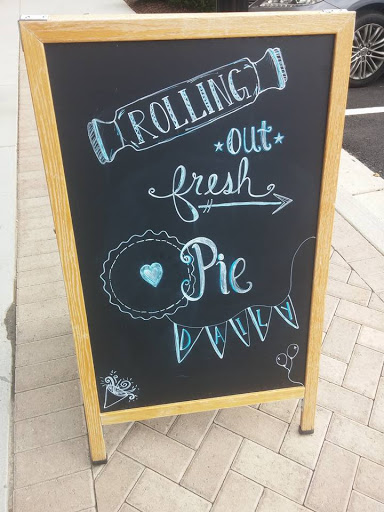 ROLLING
OUT
fresh
Pie
DAILY